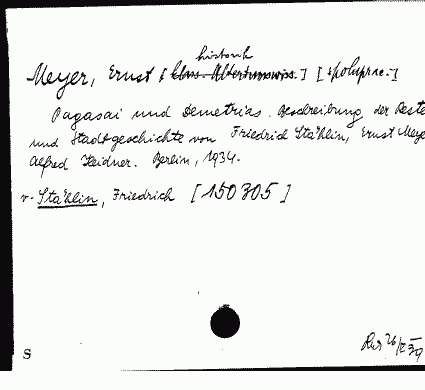 historik
Meyer, Ernst [klass. Altertumswiss.] [spoluprac.]
Pagasai und Demetrias. Beschreibung der Reste
und Stadtgeschichte von Friedrich Stählin, Ernst Meye
Alfred Heidner. Berlin, 1934.
v. Stählin, Friedrich [150305]
S